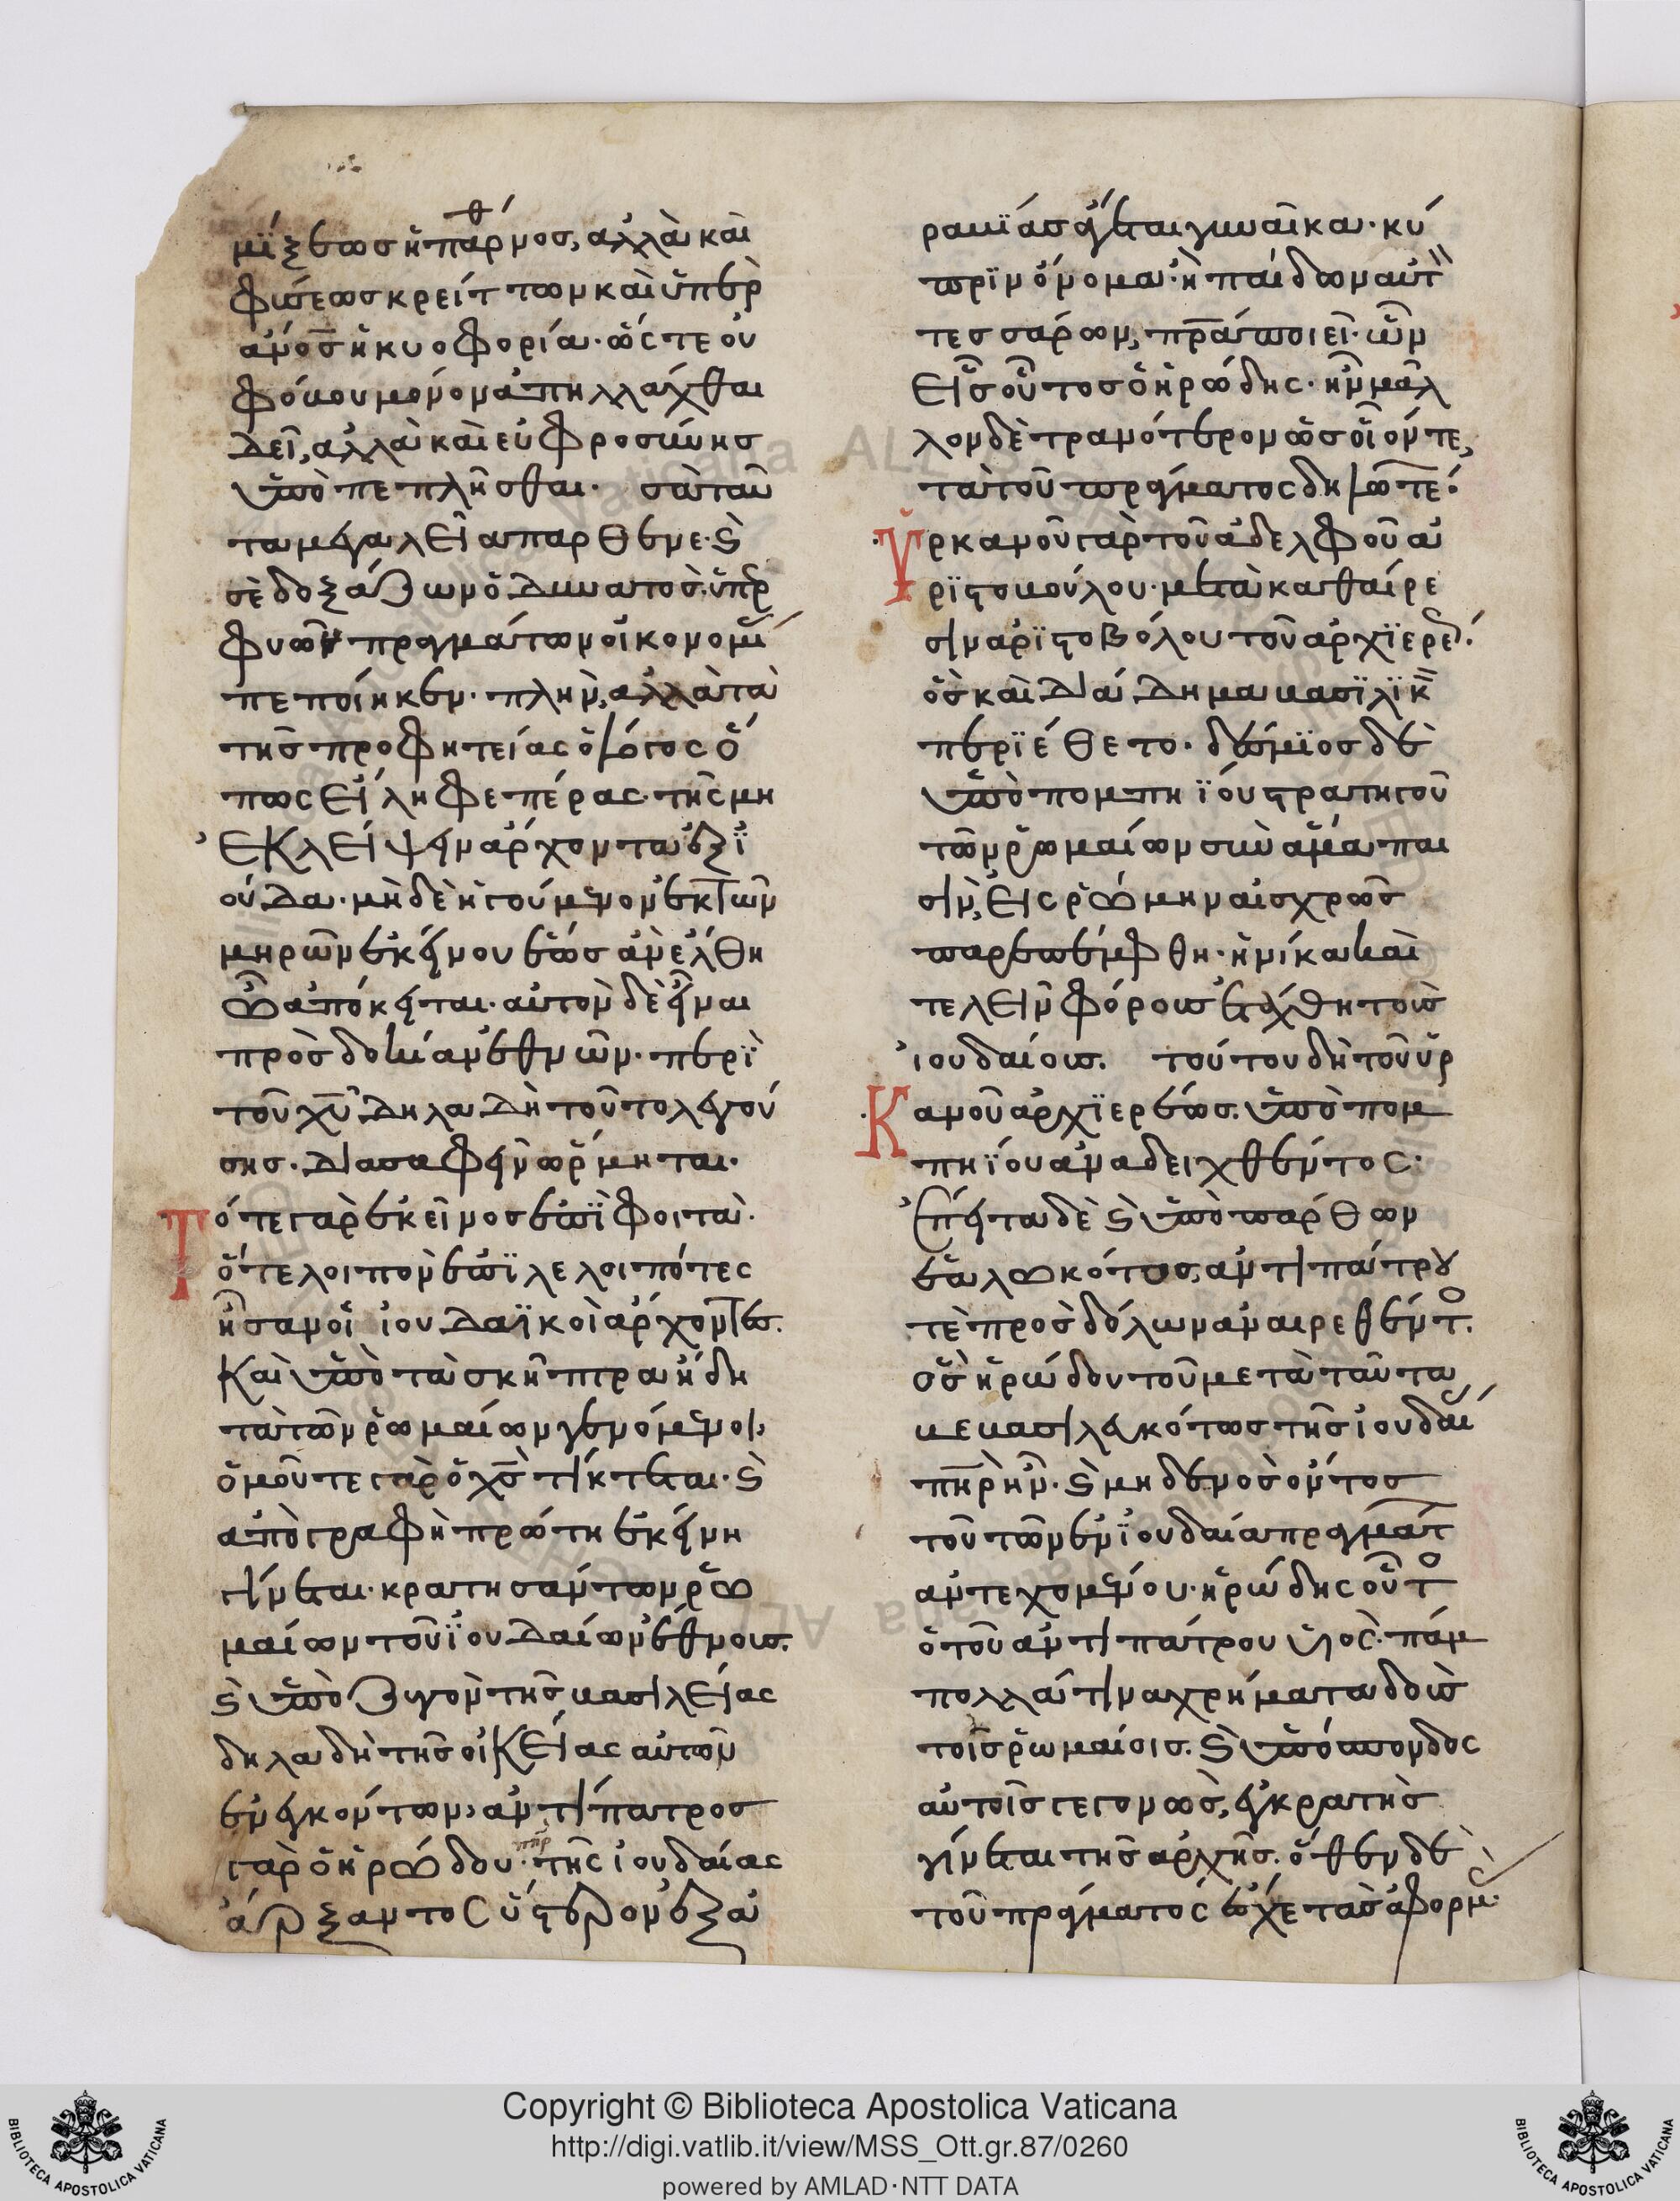 μίξεωσ ἡ πάρθμοσ, ἀλλὰ καὶ
φύσεωσ κρείττων καὶ ὑπὲρ
ἄνοσ ἡ κυοφορία· ὥστε οὐ
φόβου μόνον ἀπηλλάχθαι
δεῖ, ἀλλὰ καὶ εὐφροσύνησ
ὑποπεπλῆσθαι· σὰ ταῦ
τα μεγαλεῖα παρθένε· καὶ
σὲ δοξάζων ὁ δυνατὸσ ὑπὲρ
φυῶν πραγμάτων οἰκονομί
πεποίηκεν· πλὴν, ἀλλὰ τὰ
τῆσ προφητείας ὁ λόγος ὅ
πως εἴληφε πέρας· τῆς μὴ
ἐκλείψειν ἄρχοντα ἐξ ἰ
ούδα· μὴ δὲ ἡγούμενον ἐκ τῶν
μηρῶν ἐκείνου ἕωσ ἀνέλθη
ὧ ἀπόκειται· αὐτὸν δὲ εἶναι
προσδοκίαν ἐθνῶν· περὶ
τοῦ χυ δηλαδὴ τοῦτο λεγού
σησ· διασαφεῖν ὥρμηται·
Τότε γὰρ ἐκεῖνοσ ἐπιφοιτᾶ·
ὅτε λοιπὸν ἐπιλελοιπότες
ἦσαν οἱ ἰουδαϊκοὶ ἄρχοντεσ.
καὶ ὑπὸ τὰ σκῆπτρα ἤδη
τὰ τῶν ῥωμαίων γενόμενοι,
ὁμοῦ τε γὰρ ὁ χσ τίκτεται· καὶ
ἀπογραφὴ πρώτη ἐκείνη
γίνεται· κρατησάντων ῥω
μαίων τοῦ ἰουδαίων ἔθνουσ.
καὶ ὑπὸ ζυγὸν τῆσ βασιλείας
δηλαδὴ τῆσ οἰκείας αὐτῶν
ἐνεγκόντων, ἀντίπατροσ
γὰρ ὁ ἡρώδου πηρ τῆς ἰουδαίας
ἄρξαντος ὕστερον ἐξ ἀ
ραβίασ ἄγεται γυναῖκα· κύ
πριν ὄνομα· ἢ παίδων αὐτ
τεσσάρων, πρα ποιεῖ· ὧν
εἷσ οὗτοσ ὁ ἡρώδης· ἦν μᾶλ
λον δὲ τρανότερον ὡσ οἷόν τε,
τὰ τοῦ πράγματος δηλωτέ·
Ὑρκανοῦ γὰρ τοῦ ἀδελφοῦ ἀ
ριστοβούλου· μετὰ καθαίρε
σιν ἀριστοβόλου τοῦ ἀρχιερε·
ὃσ καὶ διάδημα βασιλικ
περιέθετο· δέσμιοσ δὲ
ὑπὸ πομπηΐου στρατηγοῦ
τῶν ῥωμαίων σὺν ἅμα παι
σὶν, εἰς ῥώμην αἰσχρῶσ
παρεπέμφθη· ἡνίκα καὶ
τελεῖν φόρουσ ἐτάχθη τοῖσ
ἰουδαίοισ. τούτου δὴ τοῦ ὑρ
Κανοῦ ἀρχιερέωσ. ὑπὸ πομ
πηΐου ἀναδειχθέντος·
εἶτα δὲ καὶ ὑπὸ πάρθων
ἑαλωκότοσ, ἀντιπάτρου
τε πρὸσ δόλων ἀναιρεθέντο.
ὃσ ἡρώδου τοῦ μετὰ ταῦτα
βεβασιλευκότοσ τῆσ ἰουδαί
πηρ ἦν· καὶ μηδενὸσ ὄντοσ
τοῦ τῶν ἐν ἰουδαία πραγμάτ
ἀντεχομένου· ἡρώδης οὗτο
ὁ τοῦ ἀντιπάτρου υἱός· πάμ
πολλά τινα χρήματα δοὺσ
τοῖσ ῥωμαίοισ. καὶ ὑπόσπονδος
αὐτοῖσ γεγονὼσ, ἐγκρατὴσ
γίνεται τῆσ ἀρχῆσ. ὅθεν δὲ
τοῦ πράγματος ἔσχε τὰσ ἀφορμ·
Copyright © Biblioteca Apostolica Vaticana
http://digi.vatlib.it/view/MSS_Ott.gr.87/0260
powered by AMLAD·NTT DATA
BIBLIOTECA APOSTOLICA VATICANA
BIBLIOTECA APOSTOLICA VATICANA